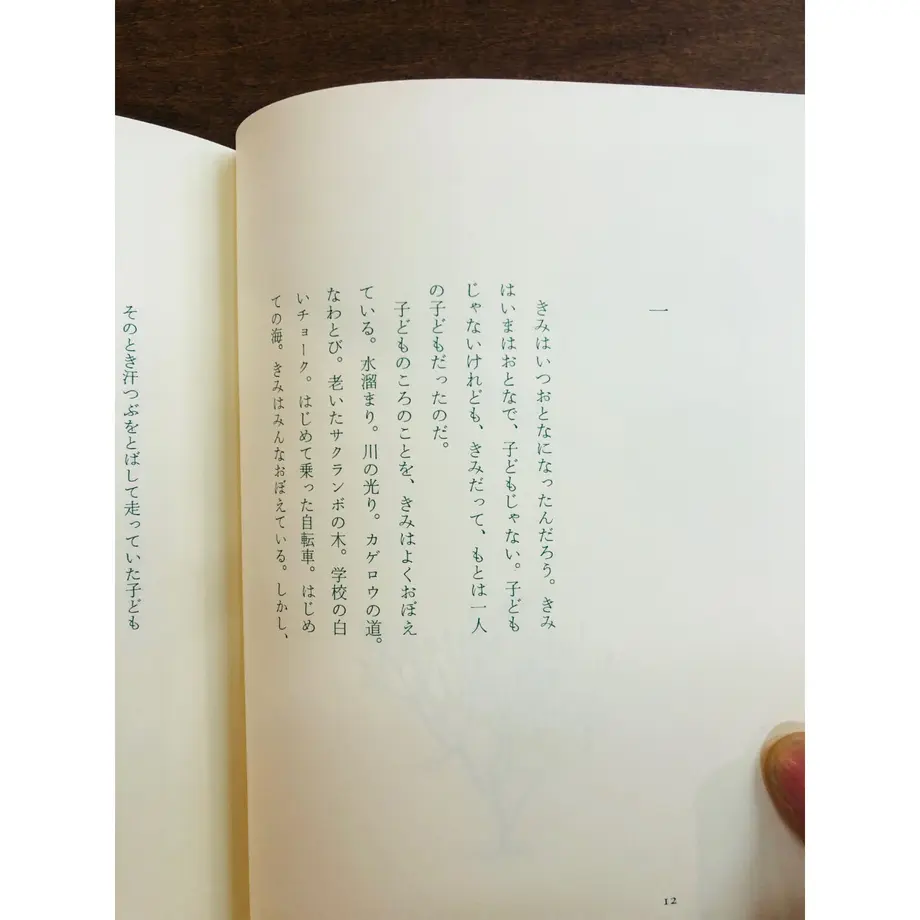 一
きみはいつおとなになったんだろう。きみ
はいまはおとなで、子どもじゃない。子ども
じゃないけれども、きみだって、もとは一人
の子どもだったのだ。
子どものころのことを、きみはよくおぼえ
ている。水溜まり。川の光り。カゲロウの道。
なわとび。老いたサクランボの木。学校の白
いチョーク。はじめて乗った自転車。はじめ
ての海。きみはみんなおぼえている。しかし、
そのとき汗つぶをとばして走っていた子ども
12